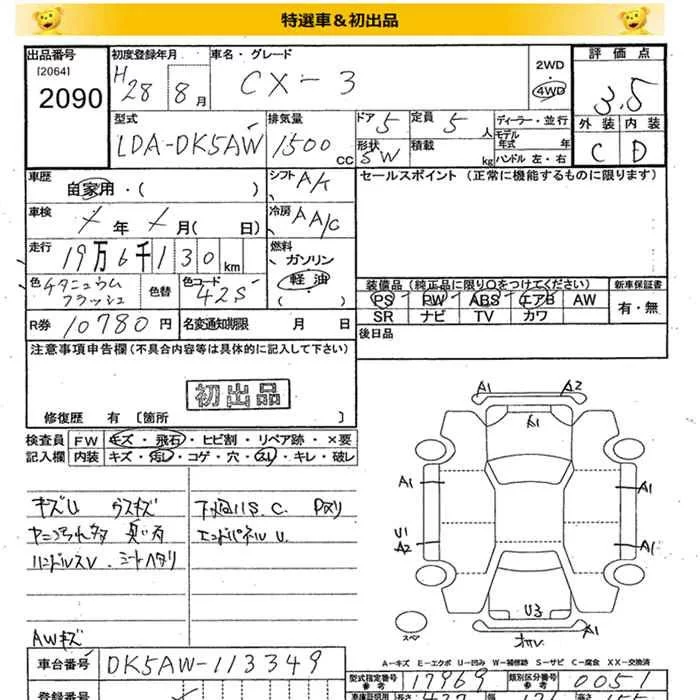 特選車&初出品
出品番号 初度登録年月 車名・グレード 2WD・4WD 評価点
[2064]
2090
H28 8月
CX-3
3.5
型式 排気量 ドア 定員 ディーラー・並行 外装 内装
LDA-DK5AW 1500cc 5 5人 モデル年式 年 C D
形状 積載 kg ハンドル 左・右
SW
車歴 自家用・( ) シフト A/T セールスポイント (正常に機能するものに限ります)
車検 年 月( 日) 冷房 AA/C
走行 19万6千130km 燃料 ガソリン
軽油
( )
色 チタニュウムフラッシュ 色替 色コード 42S
装備品 (純正品に限り○をつけてください) 新車保証書
PS PW ABS エアB AW 有・無
SR ナビ TV カワ
R券 10780円 名変通知期限 月 日 後日品
注意事項申告欄(不具合内容等は具体的に記入して下さい)
初出品
修復歴 有 [箇所 ]
検査員 FW キズ・飛石・ヒビ割・リペア跡・×要
記入欄 内装 キズ・汚レ・コゲ・穴・スレ・キレ・破レ
キズU ウスキズ
ハンドルスレ・シートヘタリ
下廻りS.C.
エンドパネルU
AWキズ
A1 A2
A1
A1 A1
U1
A2 A1
U3
A1
スペア
A-キズ E-エクボ U-凹み W-補修跡 S-サビ C-腐食 XX-交換済
車台番号 DK5AW-113349
型式指定番号 参考 17969 類別区分番号 参考 0051
登録番号
車庫証明用 長さ 427 幅 高さ 155